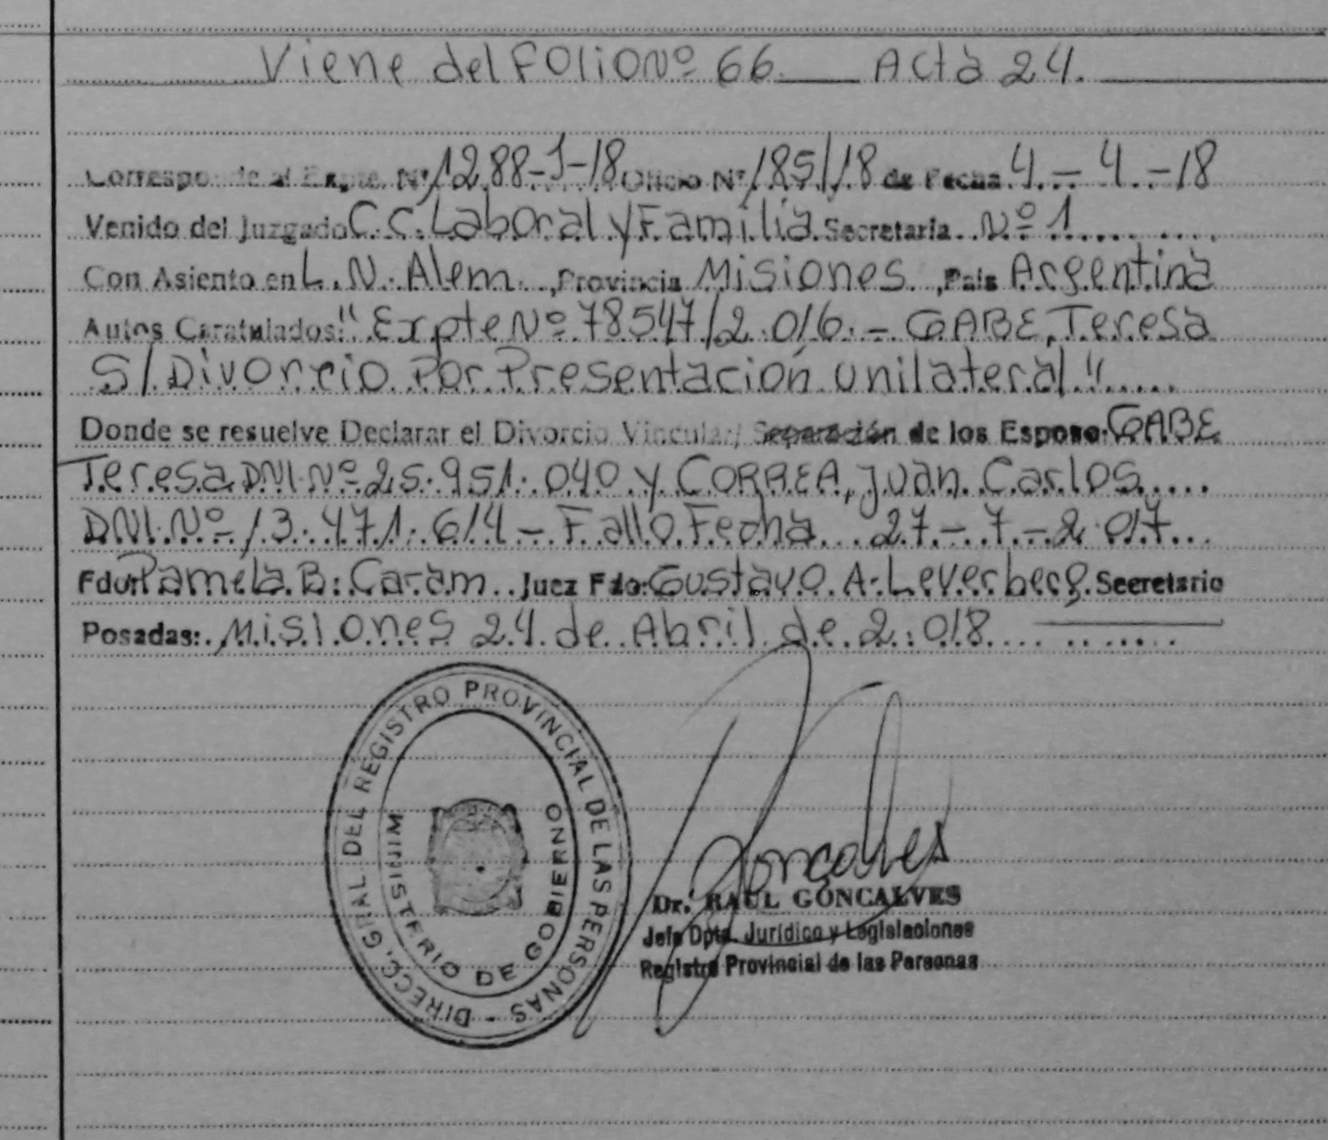 Viene del Folio Nº 66 Acta 24.
Corresponde al Expte. Nº 1288-J-18 Oficio Nº 185/18 de Fecha 4-4-18
Venido del Juzgado C.C. Laboral y Familia Secretaria Nº 1
Con Asiento en L.N. Alem, Provincia Misiones, Pais Argentina
Autos Caratulados: "Expte Nº 78547/2.016.- GABE, Teresa
S/ Divorcio Por Presentación Unilateral"
Donde se resuelve Declarar el Divorcio Vincular/ Separación de los Esposo: GABE
Teresa DNI Nº 25.951.040 y CORREA, Juan Carlos
DNI. Nº 13.471.614 - Fallo Fecha 27-7-2.017
Fdo: Pamela B. Caram. Juez Fdo: Gustavo A. Leverberg. Secretario
Posadas: Misiones 24 de Abril de 2.018
DIRECC. GRAL. DEL REGISTRO PROVINCIAL DE LAS PERSONAS -
MINISTERIO DE GOBIERNO
Goncalves
Dr. RAUL GONCALVES
Jefe Dpto. Jurídico y Legislaciones
Registro Provincial de las Personas